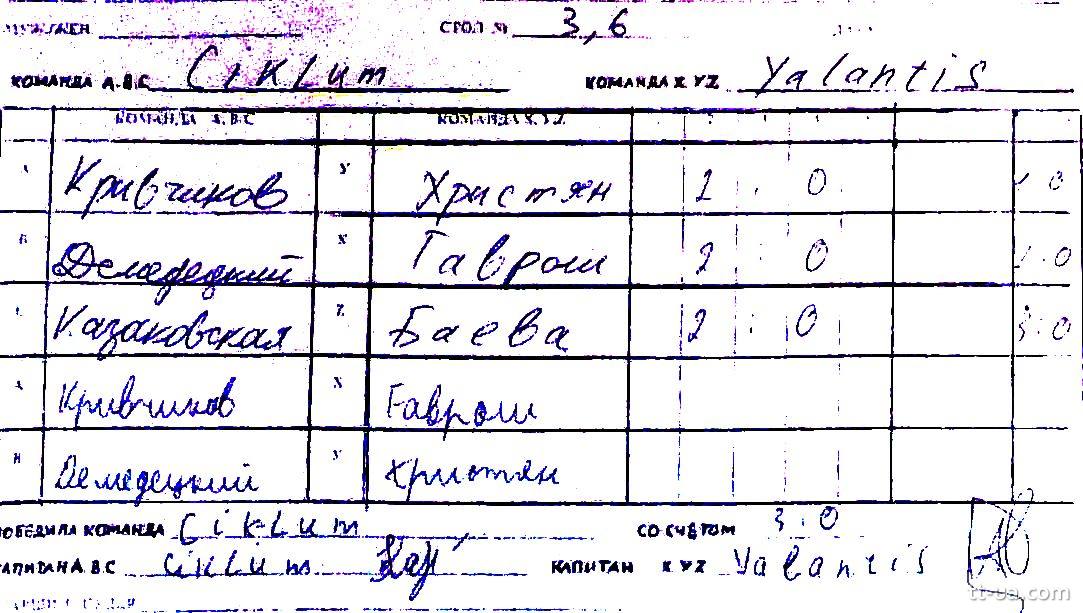 СТОЛ № 3,6
КОМАНДА А.В.С Ciklum КОМАНДА X YZ Yalantis
КОМАНДА А.В.С КОМАНДА X.Y.Z
Кривчиков У Христян 2 : 0 0
В Демедецкий X Гаврош 2 0 0
Казаковская Z Баева 2 : 0 3:0
Кривчиков X Гаврош
Демедецкий У Христян
ПОБЕДИЛА КОМАНДА Ciklum СО СЧЕТОМ 3:0
КАПИТАН А В С Ciklum КАПИТАН X YZ Yalantis
tt-ua.com